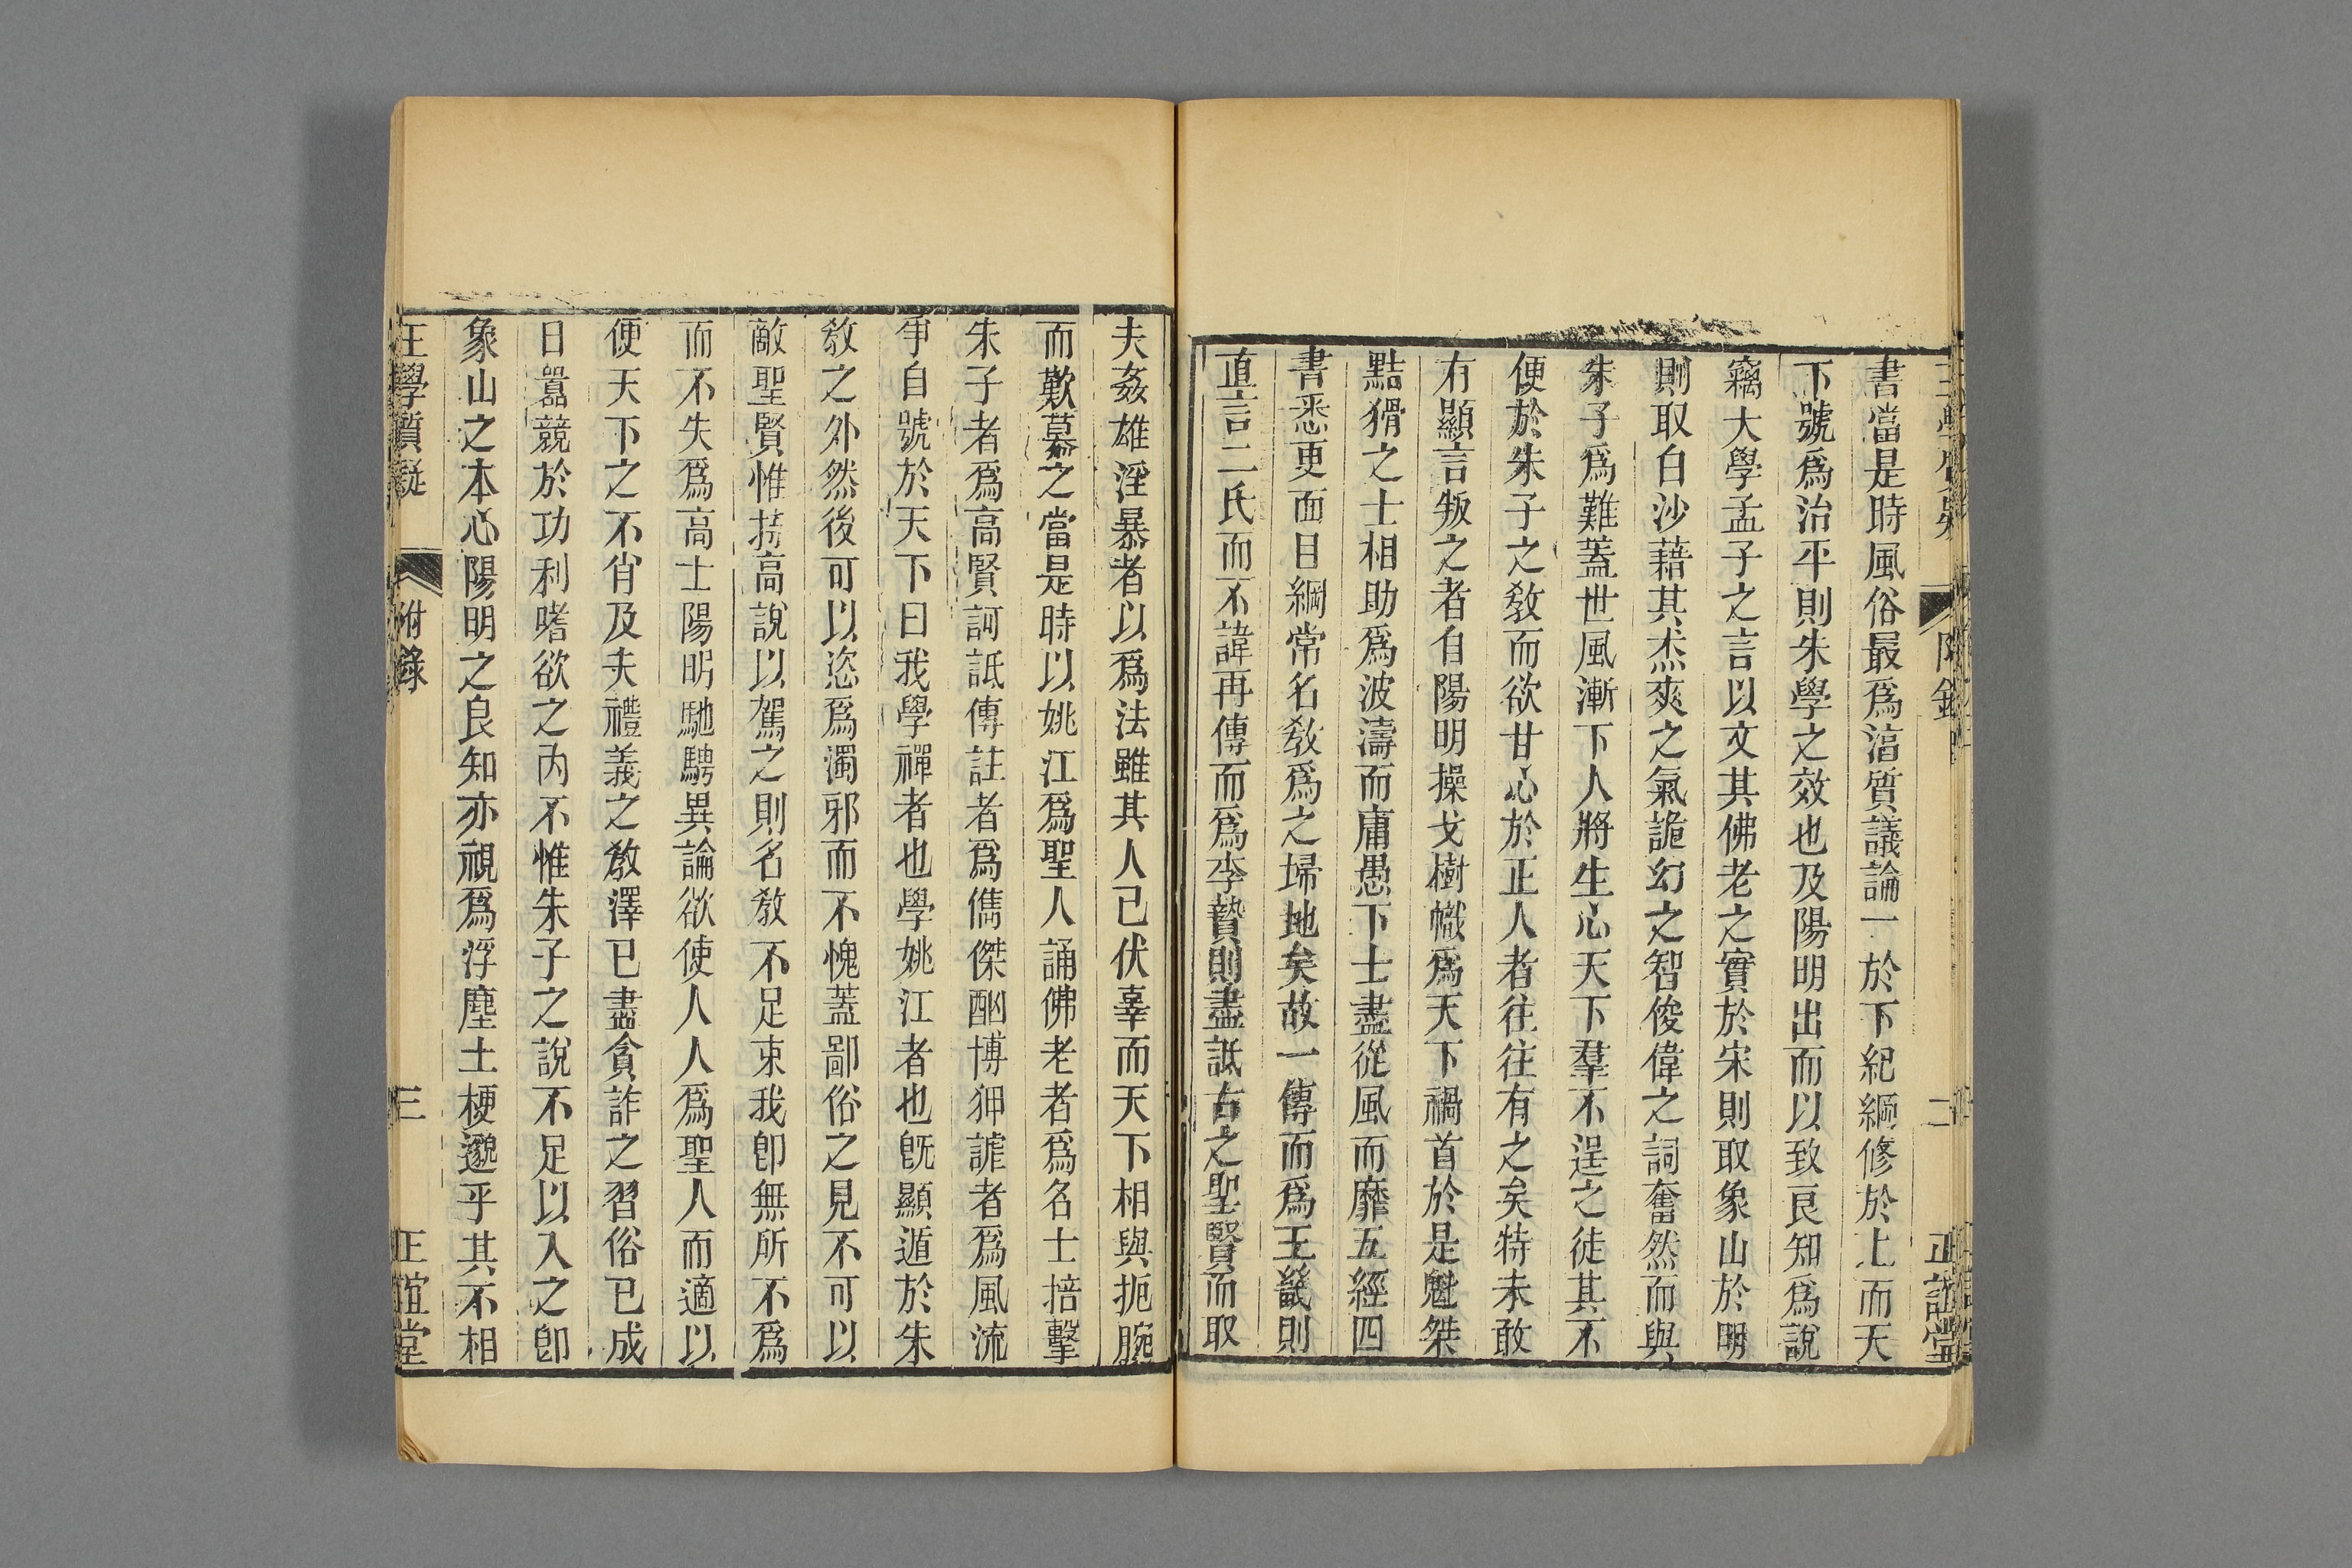 書當是時風俗最爲淳質議論一於下紀綱修於上而天
下號爲治平則朱學之效也及陽明出而以致良知爲說
竊大學孟子之言以文其佛老之實於宋則取象山於明
則取白沙藉其杰爽之氣詭幻之智俊偉之詞奮然而與
朱子爲難蓋世風漸下人將生心天下羣不逞之徒其不
便於朱子之敎而欲甘心於正人者往往有之矣特未敢
有顯言叛之者自陽明操戈樹幟爲天下禍首於是魁桀
黠猾之士相助爲波濤而庸愚下士盡從風而靡五經四
書悉更面目綱常名敎爲之埽地矣故一傳而爲王畿則
直言二氏而不諱再傳而爲李贄則盡詆古之聖賢而取
夫姦雄淫暴者以爲法雖其人已伏辜而天下相與扼腕
而歎慕之當是時以姚江爲聖人誦佛老者爲名士掊擊
朱子者爲高賢訶詆傳註者爲儁傑酗博狎謔者爲風流
爭自號於天下曰我學禪者也學姚江者也旣顯遁於朱
敎之外然後可以恣爲濁邪而不愧蓋鄙俗之見不可以
敵聖賢惟持高說以駕之則名敎不足束我卽無所不爲
而不失爲高士陽明馳騁異論欲使人人爲聖人而適以
便天下之不肖及夫禮義之敎澤已盡貪詐之習俗已成
日嚣競於功利嗜欲之內不惟朱子之說不足以入之卽
象山之本心陽明之良知亦視爲浮塵土梗邈乎其不相
王學質疑 附錄 三 正誼堂